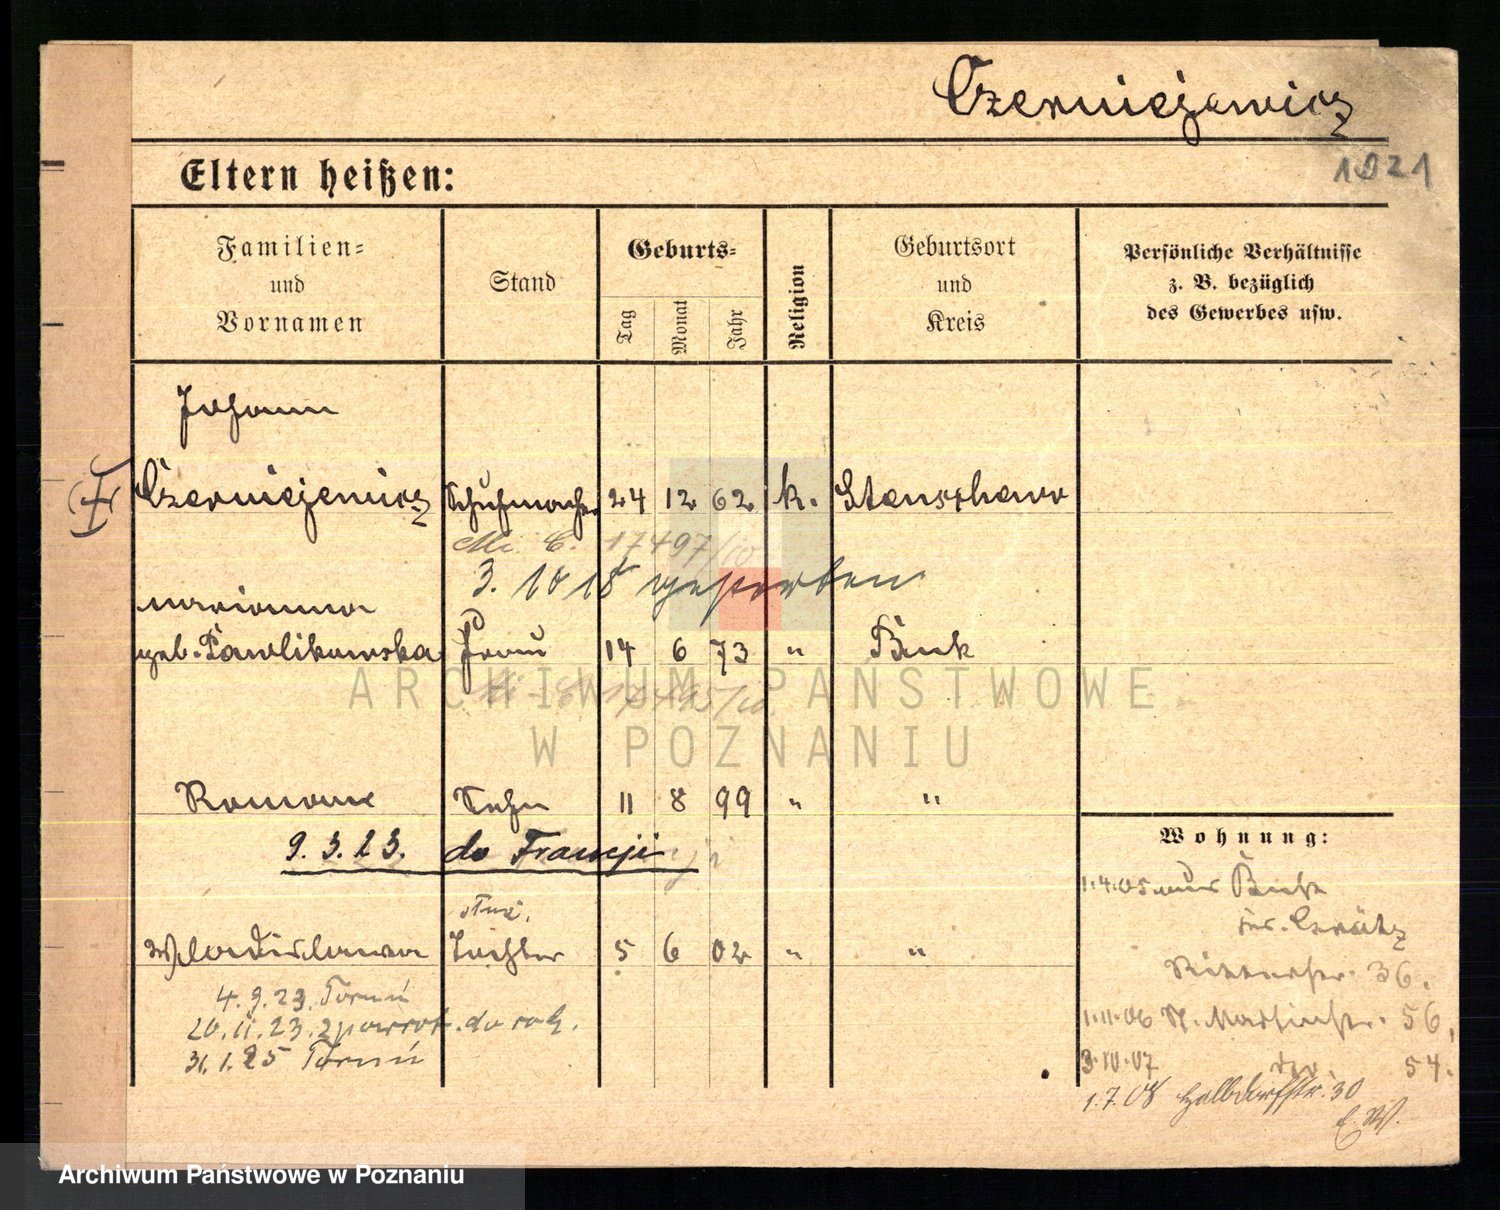 Czerniejewicz
1921
Eltern heißen:
Familien-
und
Vornamen
Stand
Geburts-
Tag
Monat
Jahr
Religion
Geburtsort
und
Kreis
Persönliche Verhältnisse
z. B. bezüglich
des Gewerbes usw.
Johann
Czerniejewicz Schuhmacher 24 12 62 k.
17497/10
3. 10 18 gestorben
Marianna
geb. Pawlikowska Frau 14 6 73 " Buk
Roman Sohn 11 8 99 " "
9.3.23. do Francji
Wladislawa Tochter 5 6 02 " "
4.9.23. Toruń
20.11.23. zpowrot. do rodz.
31.1.25 Toruń
Wohnung:
1.4.05 aus Buk
Ritterstr. 36.
1.11.06 St. Martinstr. 56,
3.10.07 54.
1.7.08 Halbdorfstr. 30
ARCHIWUM PAŃSTWOWE
W POZNANIU
Archiwum Państwowe w Poznaniu